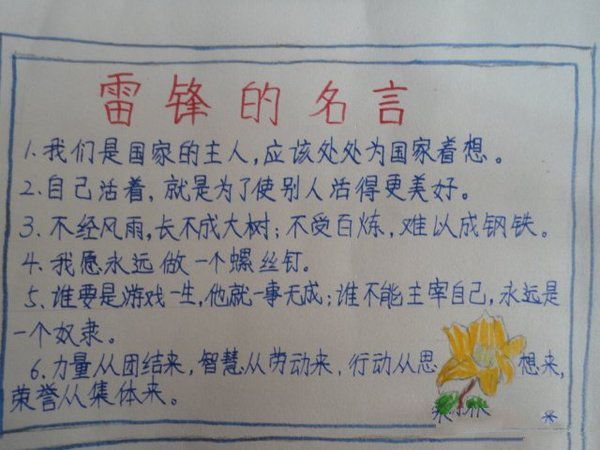 雷锋的名言
1.我们是国家的主人,应该处处为国家着想。
2.自己活着,就是为了使别人活得更美好。
3.不经风雨,长不成大树;不受百炼,难以成钢铁。
4.我愿永远做一个螺丝钉。
5、谁要是游戏一生,他就一事无成;谁不能主宰自己,永远是
一个奴隶。
6.力量从团结来,智慧从劳动来,行动从思想来,
荣誉从集体来。